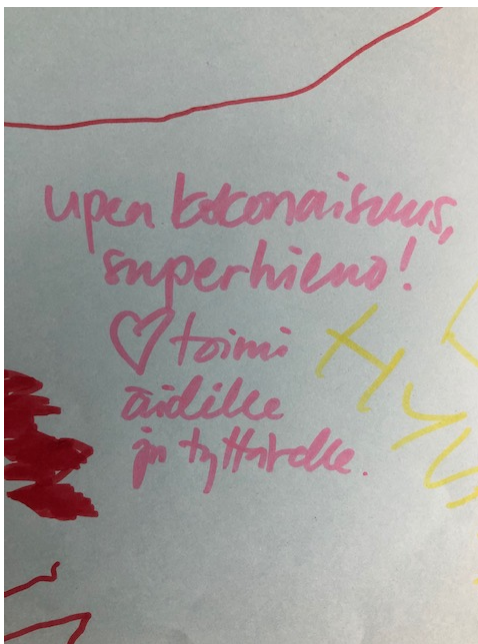 upea kokonaisuus,
superhieno!
♡ toimi
äidille
ja tyttärelle.
HYV